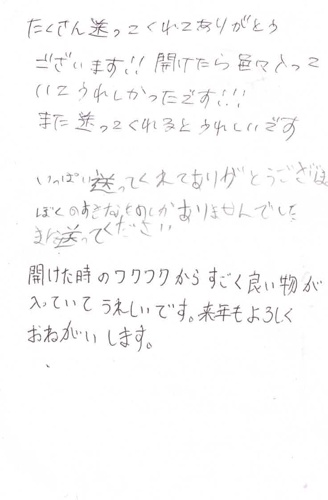 たくさん送ってくれてありがとう
ございます!! 開けたら色々入って
いてうれしかったです!!!
また送ってくれるとうれしいです
いっぱい送ってくれてありがとうござい
ぼくのすきなものしかありませんでした
また送ってください
開けた時のワクワクからすごく良い物が
入っていてうれしいです。来年もよろしく
おねがいします。